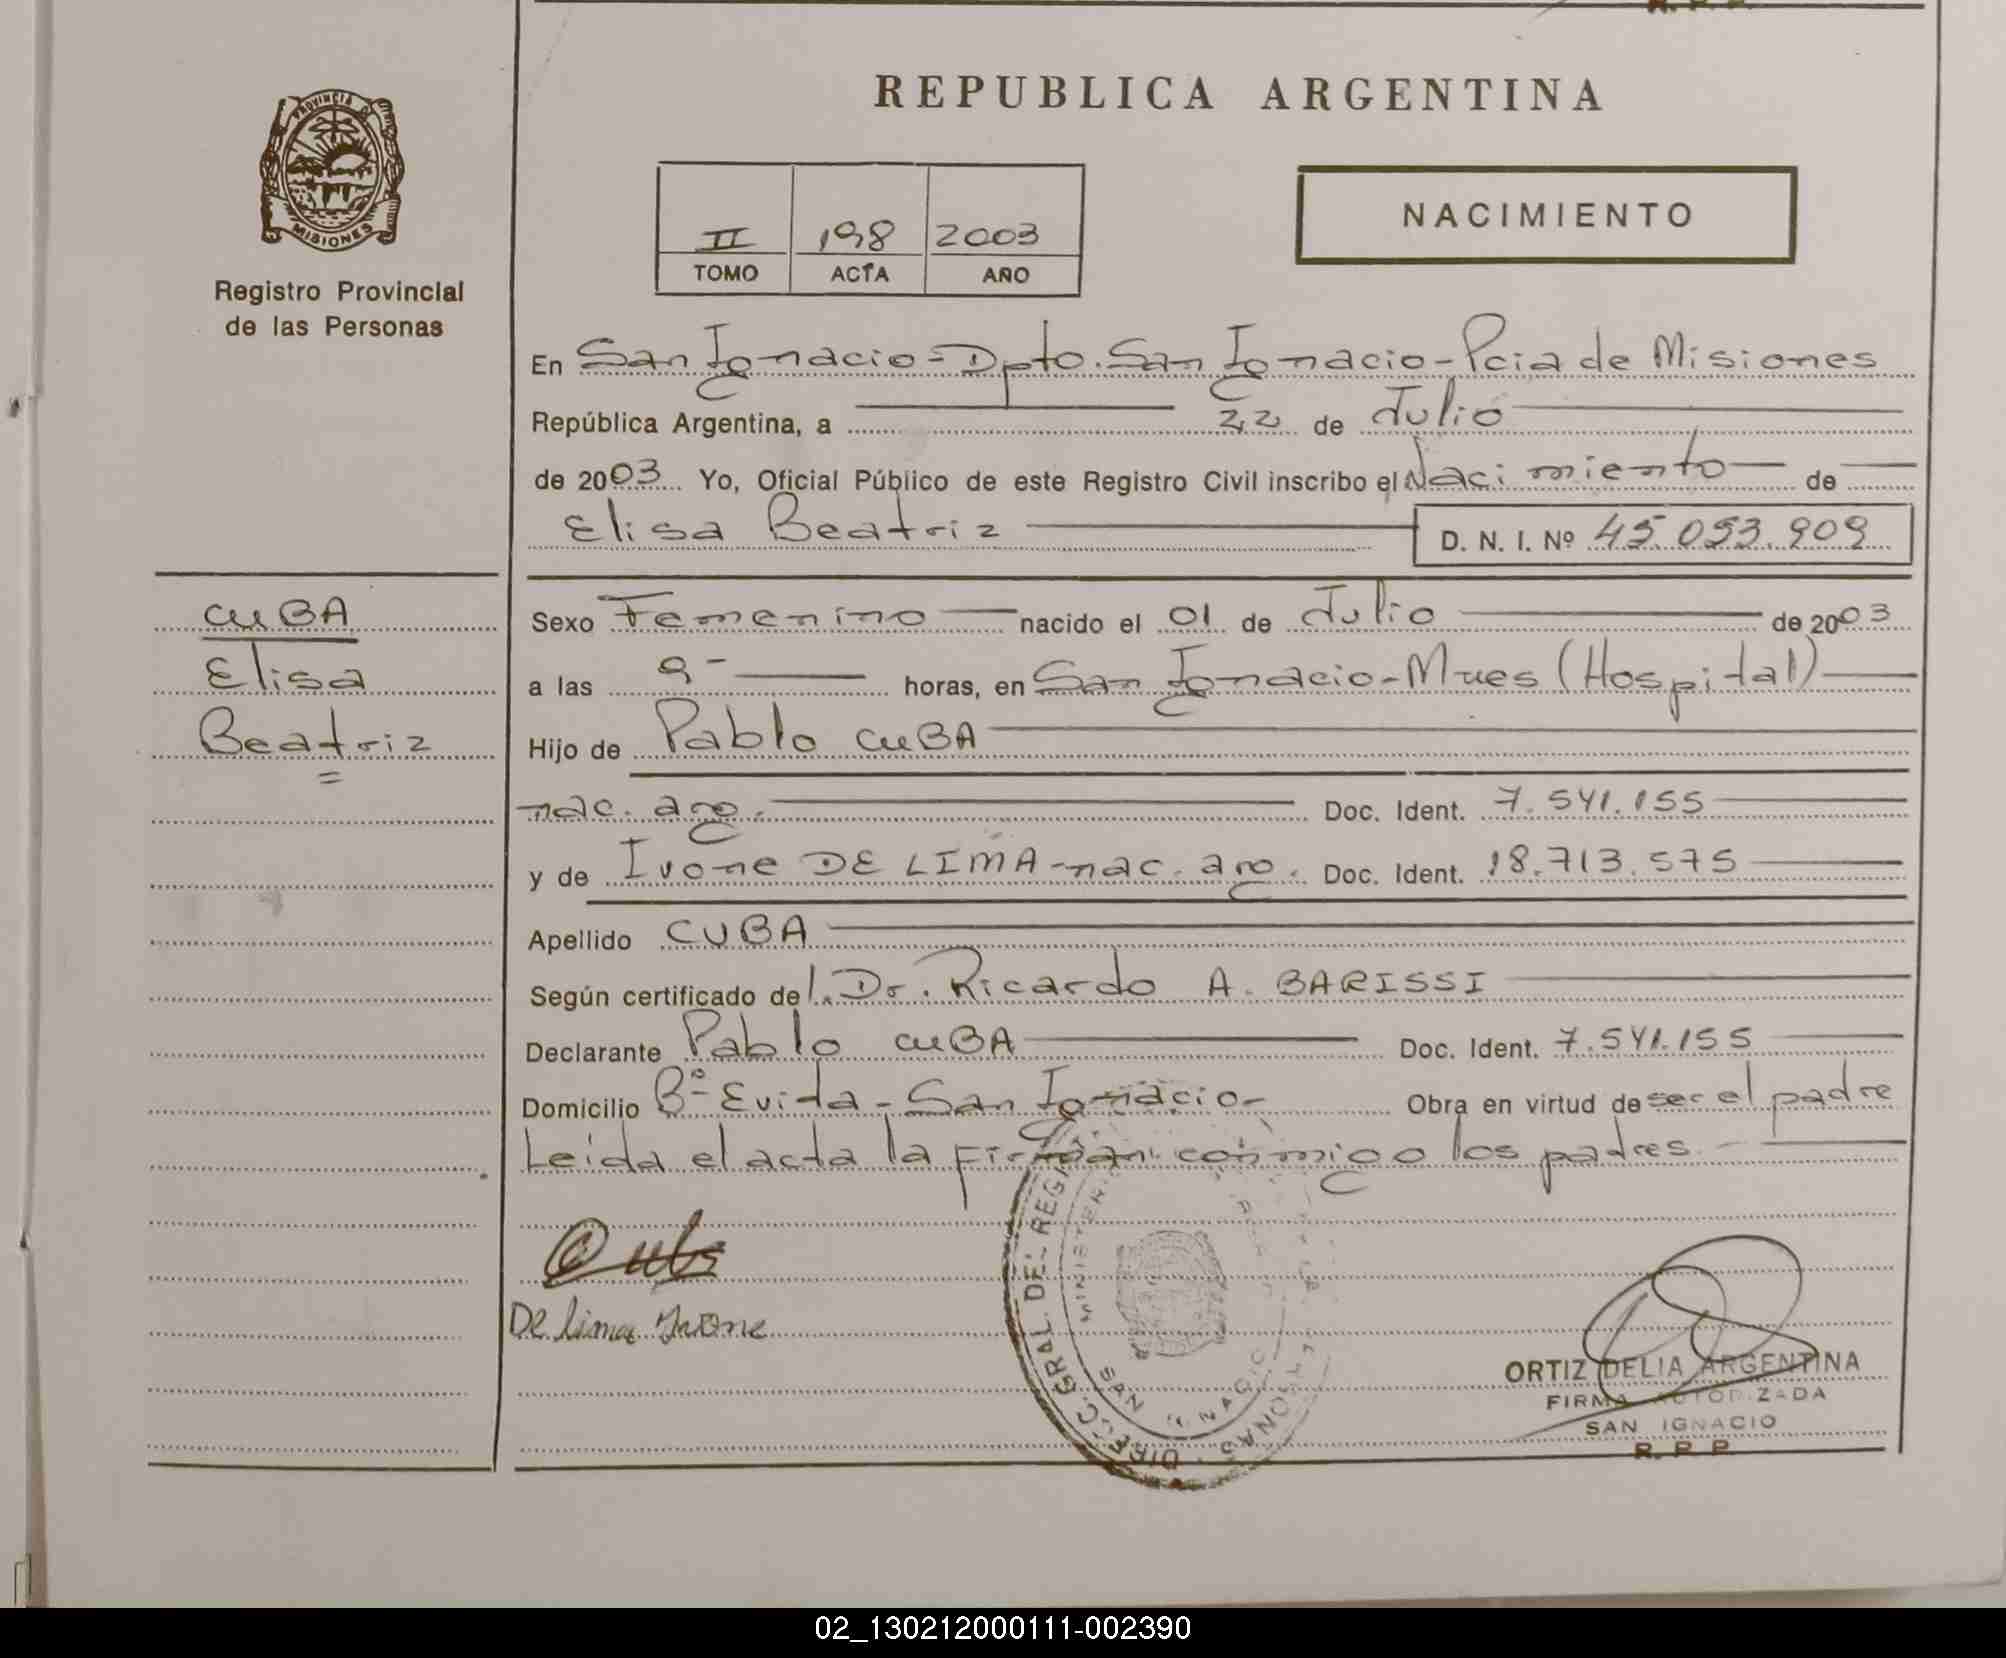 R. P. P.
REPUBLICA ARGENTINA
PROVINCIA DE
MISIONES
Registro Provincial
de las Personas
II 198 2003
TOMO ACTA AÑO
NACIMIENTO
En San Ignacio - Dpto. San Ignacio - Pcia de Misiones
República Argentina, a 22 de Julio
de 2003 Yo, Oficial Público de este Registro Civil inscribo el Nacimiento de
Elisa Beatriz D. N. I. Nº 45.093.909
CUBA
Elisa
Beatriz
Sexo Femenino nacido el 01 de Julio de 2003
a las 9- horas, en San Ignacio - Mnes (Hospital)
Hijo de Pablo CUBA
nac. arg. Doc. Ident. 7.541.155
y de Ivone DE LIMA - nac. arg. Doc. Ident. 18.713.575
Apellido CUBA
Según certificado del Dr. Ricardo A. BARISSI
Declarante Pablo CUBA Doc. Ident. 7.541.155
Domicilio Bº Evida - San Ignacio - Obra en virtud de ser el padre
Leida el acta la firman conmigo los padres. -
De lima Ivone
DIRECC. GRAL. DEL REG
MINISTER
SAN IGNACIO
SONAS
ORTIZ DELIA ARGENTINA
FIRMA AUTORIZADA
SAN IGNACIO
R. P. P.
02_130212000111-002390